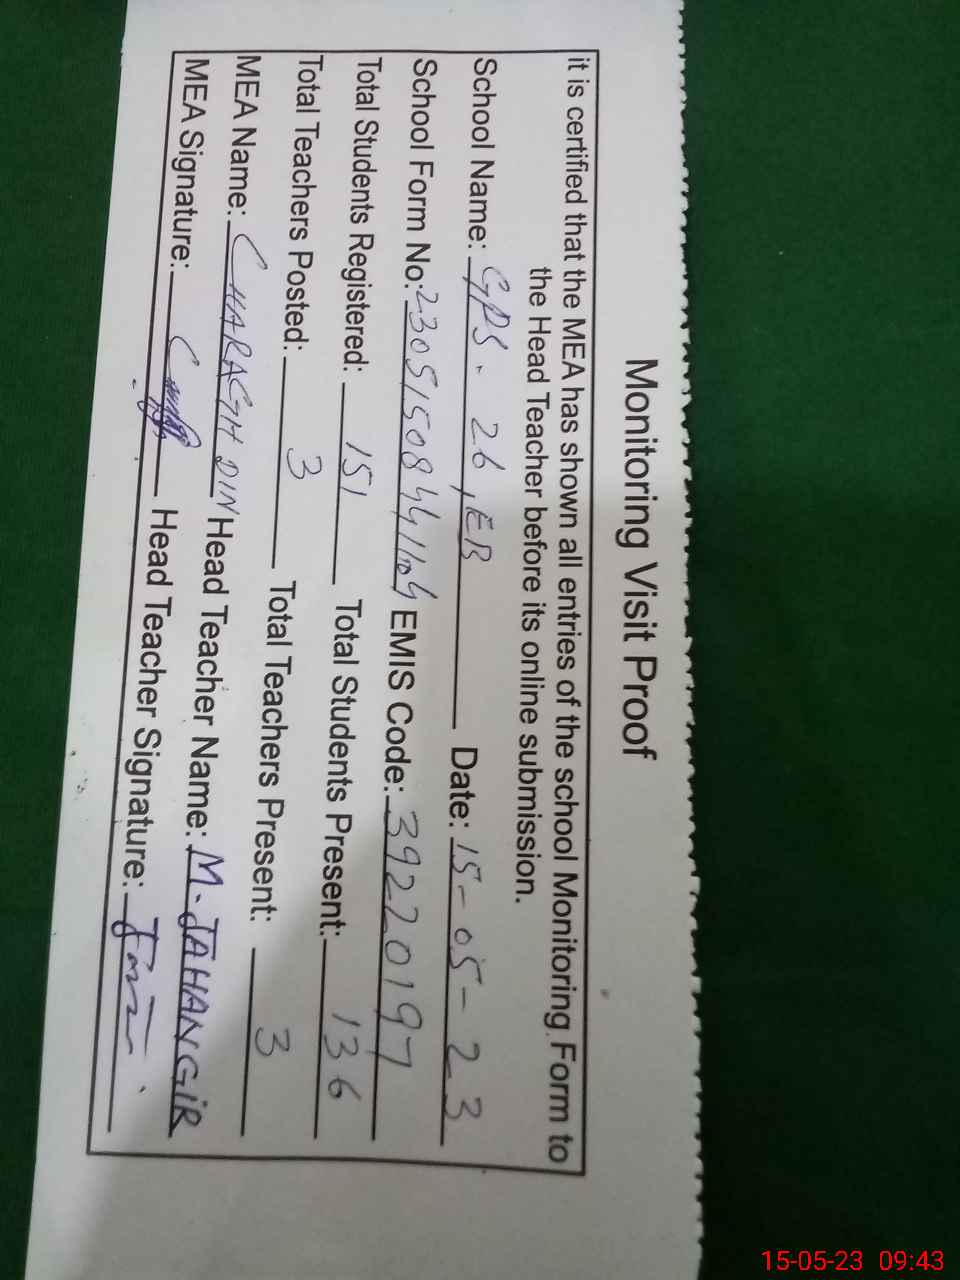 Monitoring Visit Proof
it is certified that the MEA has shown all entries of the school Monitoring Form to
the Head Teacher before its online submission.
School Name: GPS. 26, EB Date: 15-05-23
School Form No: EMIS Code: 39220197
Total Students Registered: 151 Total Students Present: 136
Total Teachers Posted: 3 Total Teachers Present: 3
MEA Name: CHARAGH DIN Head Teacher Name: M. JAHANGIR
MEA Signature: Head Teacher Signature:
15-05-23 09:43